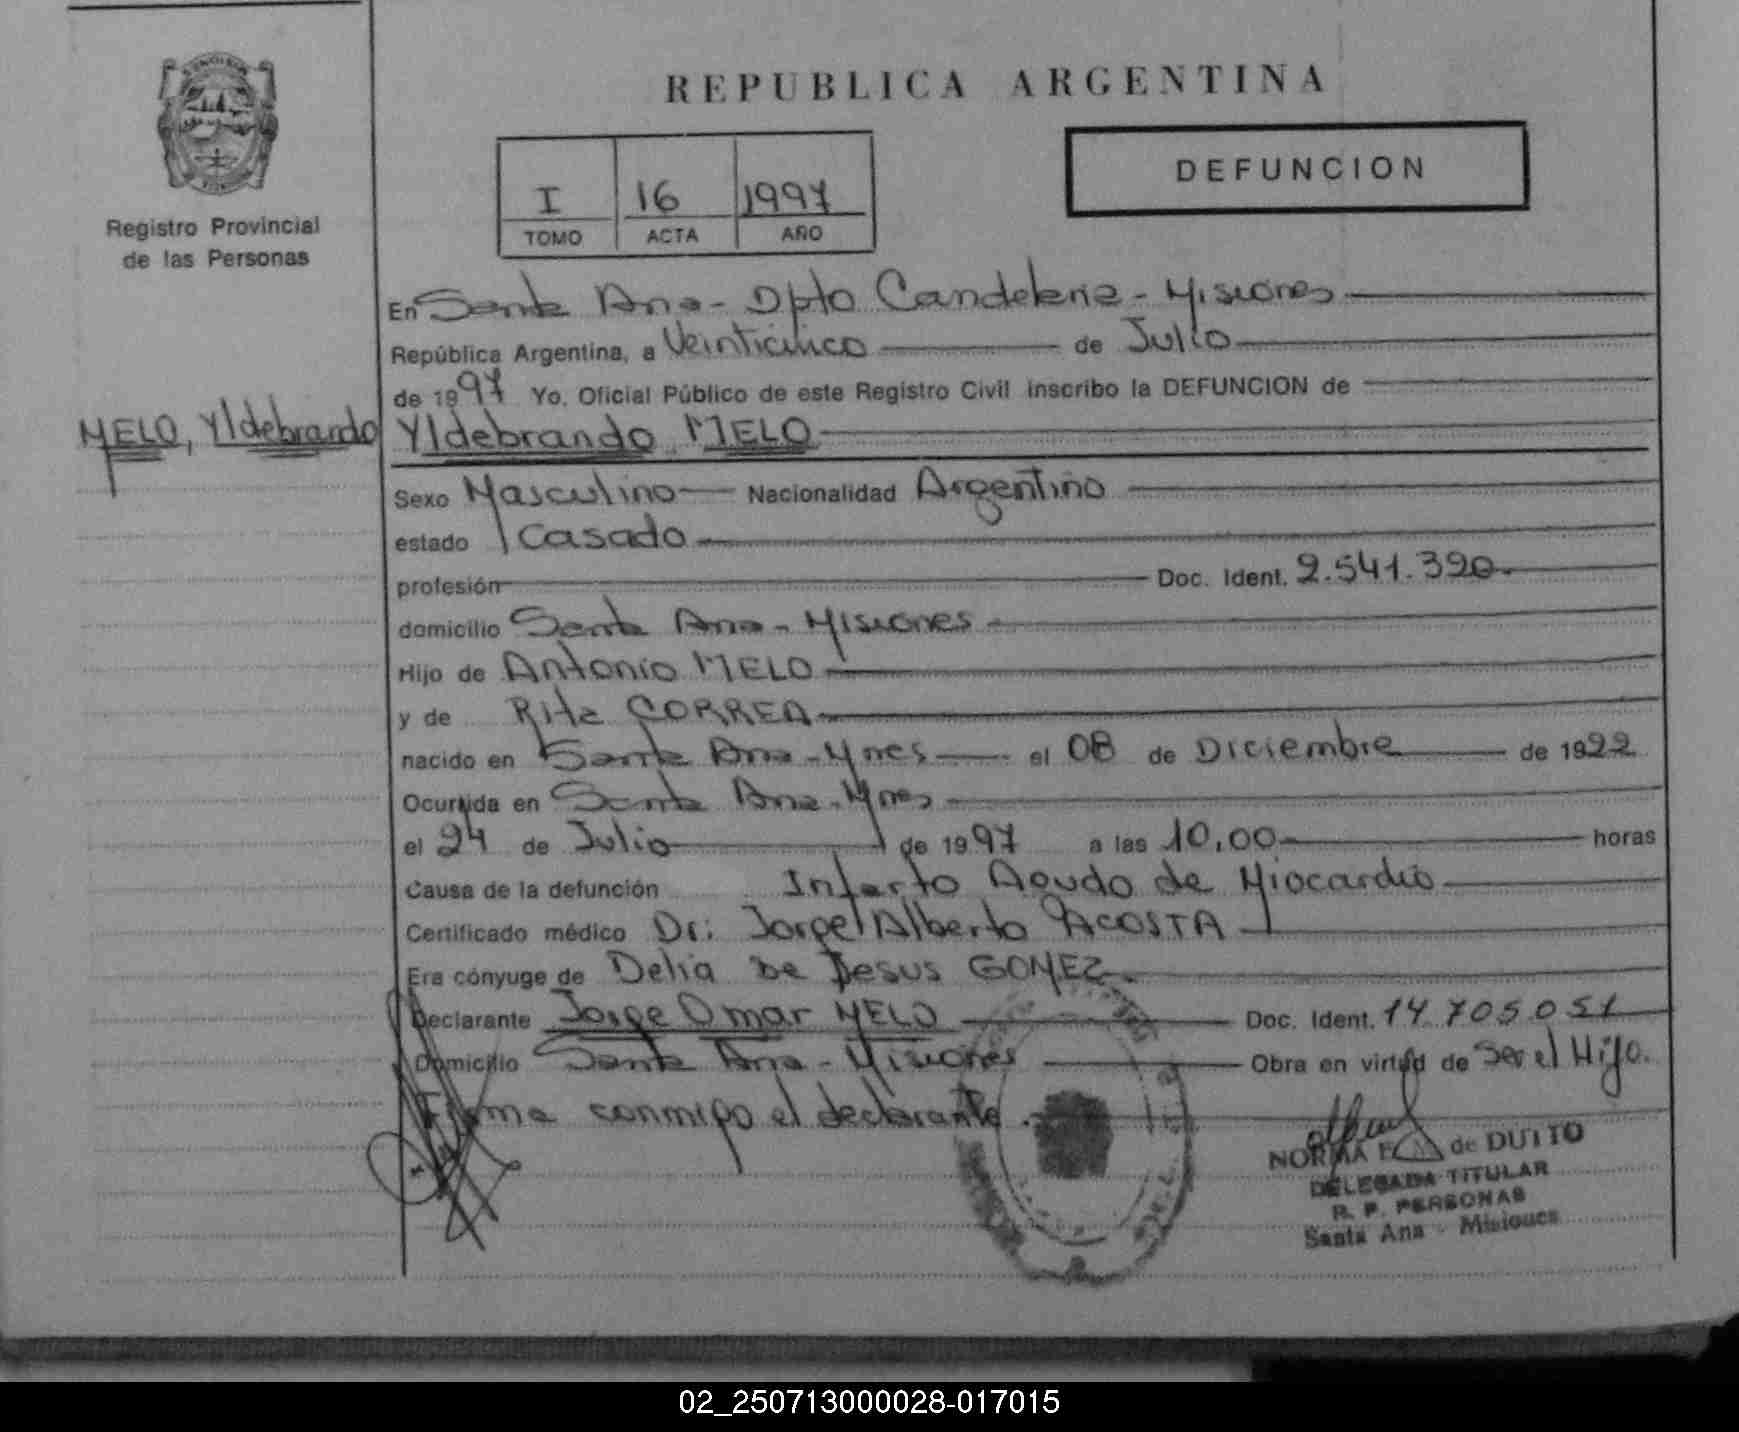 REPUBLICA ARGENTINA
DEFUNCION
I 16 1997
TOMO ACTA AÑO
Registro Provincial
de las Personas
En Santa Ana - Dpto Candelaria - Misiones
República Argentina, a Veinticinco de Julio
de 1997 Yo, Oficial Público de este Registro Civil inscribo la DEFUNCION de
MELO, Yldebrando
Yldebrando MELO
Sexo Masculino Nacionalidad Argentino
estado Casado
profesión Doc. Ident. 2.541.390.
domicilio Santa Ana - Misiones
Hijo de Antonio MELO
y de Rita CORREA
nacido en Santa Ana - Mnes el 08 de Diciembre de 1922
Ocurrida en Santa Ana - Mnes
el 24 de Julio de 1997 a las 10,00 horas
Causa de la defunción Infarto Agudo de Miocardio
Certificado médico Dr: Jorge Alberto ACOSTA
Era cónyuge de Delia De Jesus GOMEZ
Declarante Jorge Omar MELO Doc. Ident. 14.705051
Domicilio Santa Ana - Misiones Obra en virtud de Ser el Hijo.
Firma conmigo el declarante.
NORMA de DUTTO
DELEGADA TITULAR
R. P. PERSONAS
Santa Ana - Misiones
02_250713000028-017015